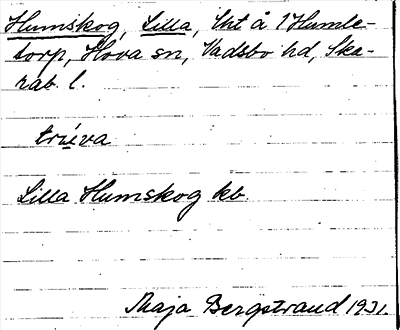 Humskog, Lilla, Lht å 1 Humle-
torp, Hova sn, Vadsbo hd, Ska-
rab. l.
trúva
Lilla Humskog kb.
Maja Bergstrand 1931.